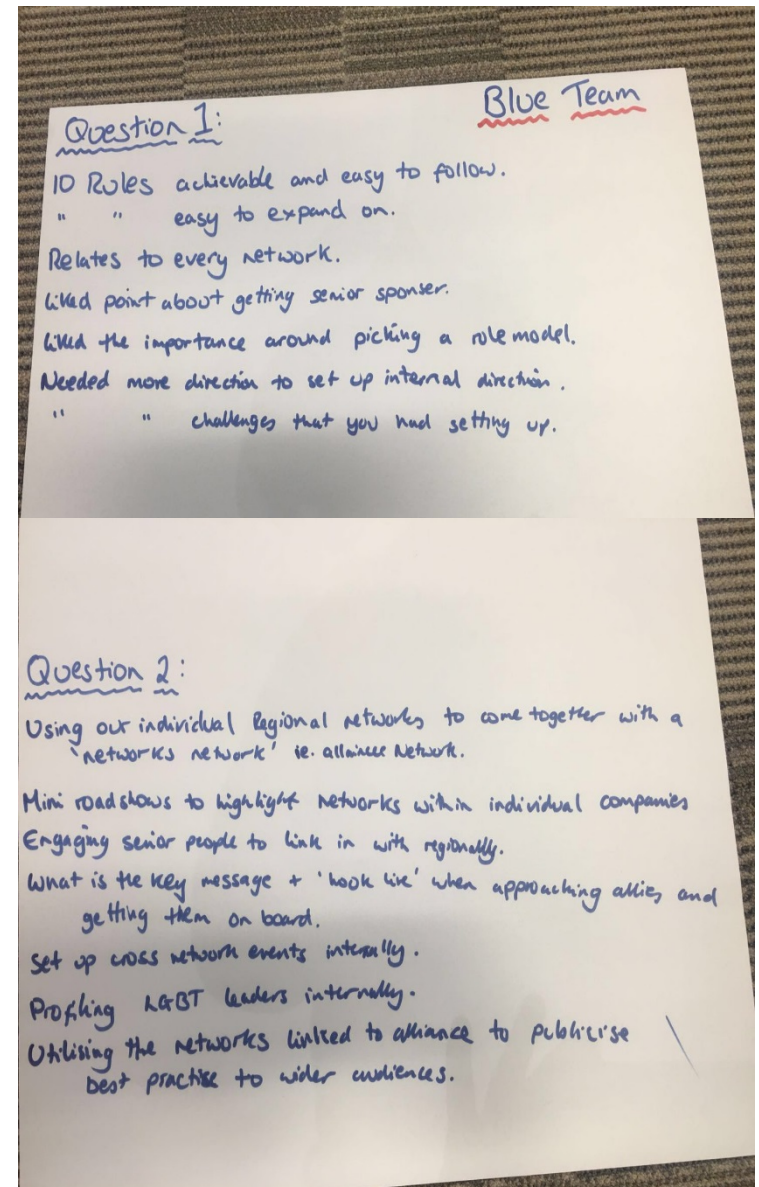 Blue Team
Question 1:
10 Rules achievable and easy to follow.
" " easy to expand on.
Relates to every network.
Liked point about getting senior sponser.
Liked the importance around picking a role model.
Needed more direction to set up internal direction.
" " challenges that you had setting up.
Question 2:
Using our individual Regional networks to come together with a
'networks network' ie. Network.
Mini roadshows to highlight networks within individual companies
Engaging senior people to link in with regionally.
What is the key message + 'hook line' when approaching allies and
getting them on board.
Set up cross network events internally.
Profiling LGBT leaders internally.
Utilising the networks linked to alliance to publicise
best practise to wider audiences.